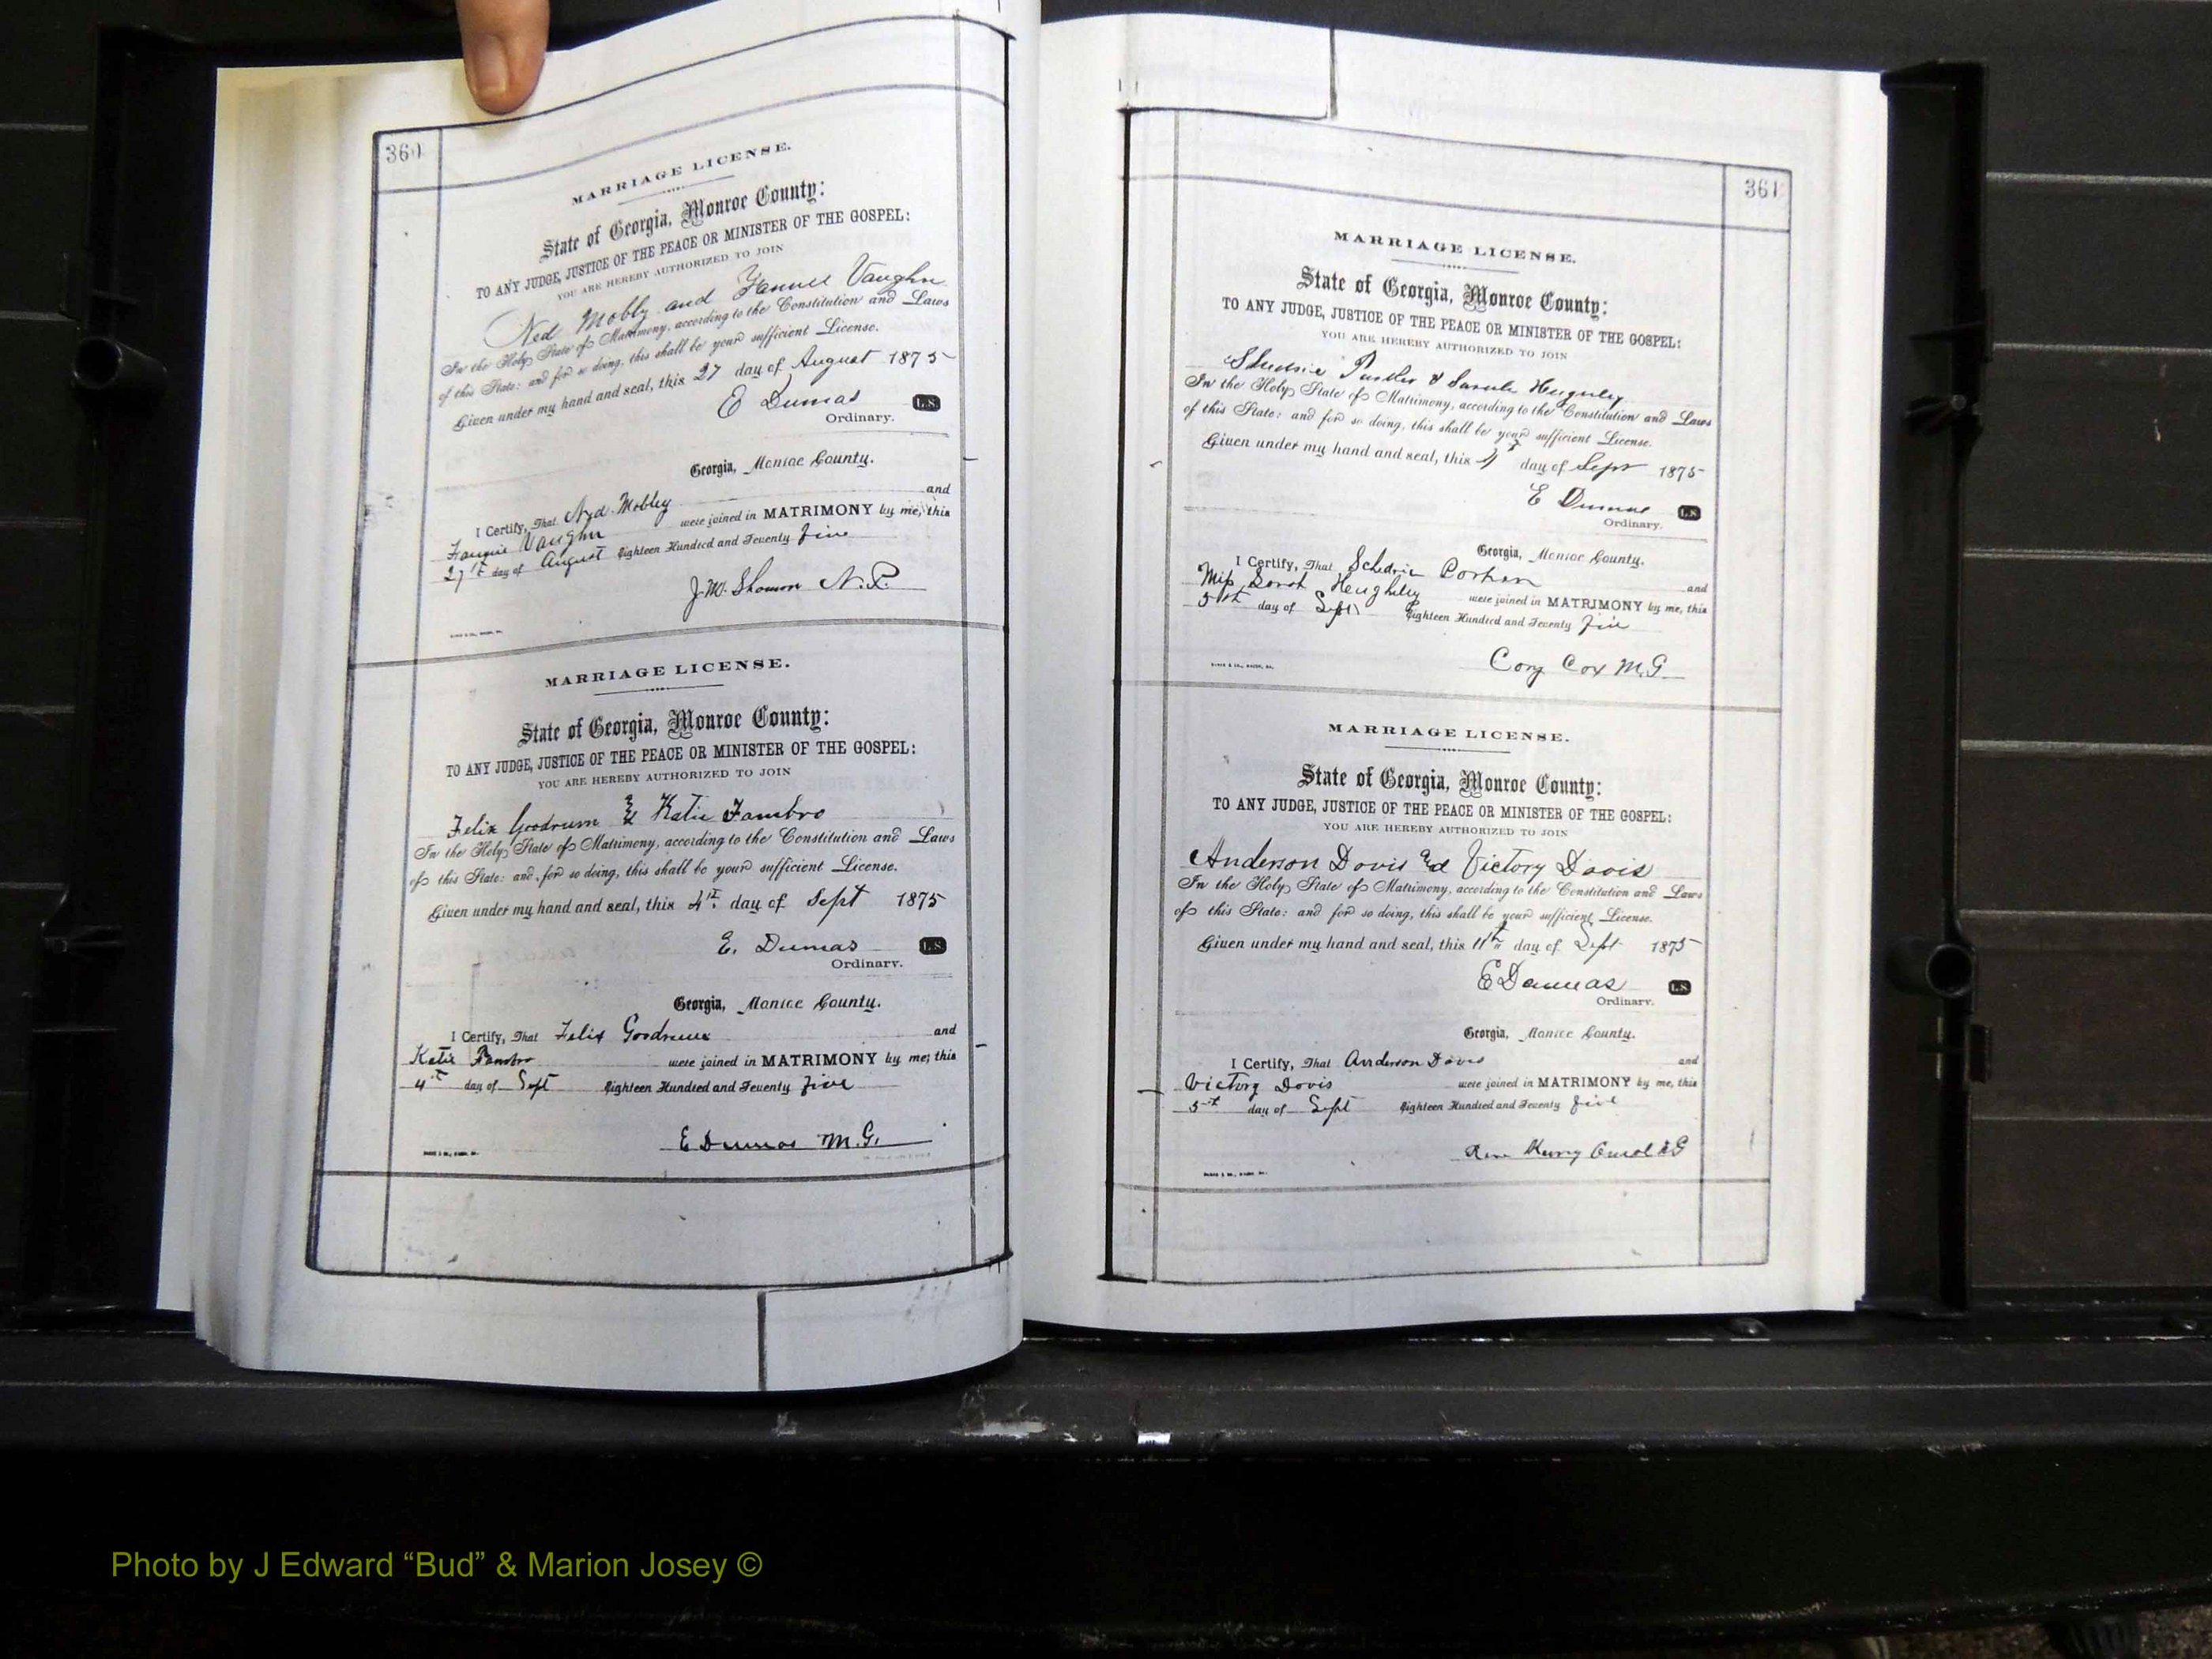 360
MARRIAGE LICENSE.
State of Georgia, Monroe County:
TO ANY JUDGE, JUSTICE OF THE PEACE OR MINISTER OF THE GOSPEL:
YOU ARE HEREBY AUTHORIZED TO JOIN
Ned Mobly and Fannie Vaughn
In the Holy State of Matrimony, according to the Constitution and Laws
of this State: and for so doing, this shall be your sufficient License.
Given under my hand and seal, this 27 day of August 1875
E Dumas L.S.
Ordinary.
Georgia, Monroe County.
I Certify, That Ned Mobley and
Fannie Vaughn were joined in MATRIMONY by me, this
27th day of August Eighteen Hundred and Seventy Five
J.M. N.P.
MARRIAGE LICENSE.
State of Georgia, Monroe County:
TO ANY JUDGE, JUSTICE OF THE PEACE OR MINISTER OF THE GOSPEL:
YOU ARE HEREBY AUTHORIZED TO JOIN
Felix Goodrum & Katie Fambro
In the Holy State of Matrimony, according to the Constitution and Laws
of this State: and for so doing, this shall be your sufficient License.
Given under my hand and seal, this 4th day of Sept 1875
E. Dumas L.S.
Ordinary.
Georgia, Monroe County.
I Certify, That Felix Goodrum and
Katie Fambro were joined in MATRIMONY by me, this
4th day of Sept Eighteen Hundred and Seventy Five
E Dumas M.G.
361
MARRIAGE LICENSE.
State of Georgia, Monroe County:
TO ANY JUDGE, JUSTICE OF THE PEACE OR MINISTER OF THE GOSPEL:
YOU ARE HEREBY AUTHORIZED TO JOIN
& Sarah Heuguley
In the Holy State of Matrimony, according to the Constitution and Laws
of this State: and for so doing, this shall be your sufficient License.
Given under my hand and seal, this 4th day of Sept 1875
E Dumas L.S.
Ordinary.
Georgia, Monroe County.
I Certify, That Schedric and
Miss Sarah Heughley were joined in MATRIMONY by me, this
5th day of Sept Eighteen Hundred and Seventy five
Cory Cox M.G.
MARRIAGE LICENSE.
State of Georgia, Monroe County:
TO ANY JUDGE, JUSTICE OF THE PEACE OR MINISTER OF THE GOSPEL:
YOU ARE HEREBY AUTHORIZED TO JOIN
Anderson Davis and Victory Davis
In the Holy State of Matrimony, according to the Constitution and Laws
of this State: and for so doing, this shall be your sufficient License.
Given under my hand and seal, this 11th day of Sept 1875
E Dumas L.S.
Ordinary.
Georgia, Monroe County.
I Certify, That Anderson Davis and
Victory Davis were joined in MATRIMONY by me, this
5th day of Sept Eighteen Hundred and Seventy five
Photo by J Edward “Bud” & Marion Josey ©